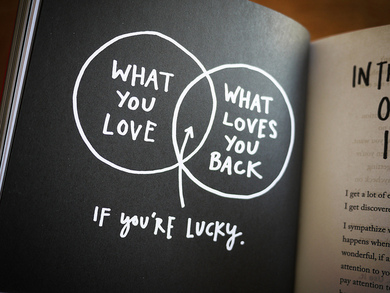 WHAT
YOU
LOVE
WHAT
LOVES
YOU
BACK
IF YOU'RE LUCKY.
IN T
O
I get a lot of e
I get discover
I sympathize w
happens when
wonderful, if a
attention to yo
pay attention t